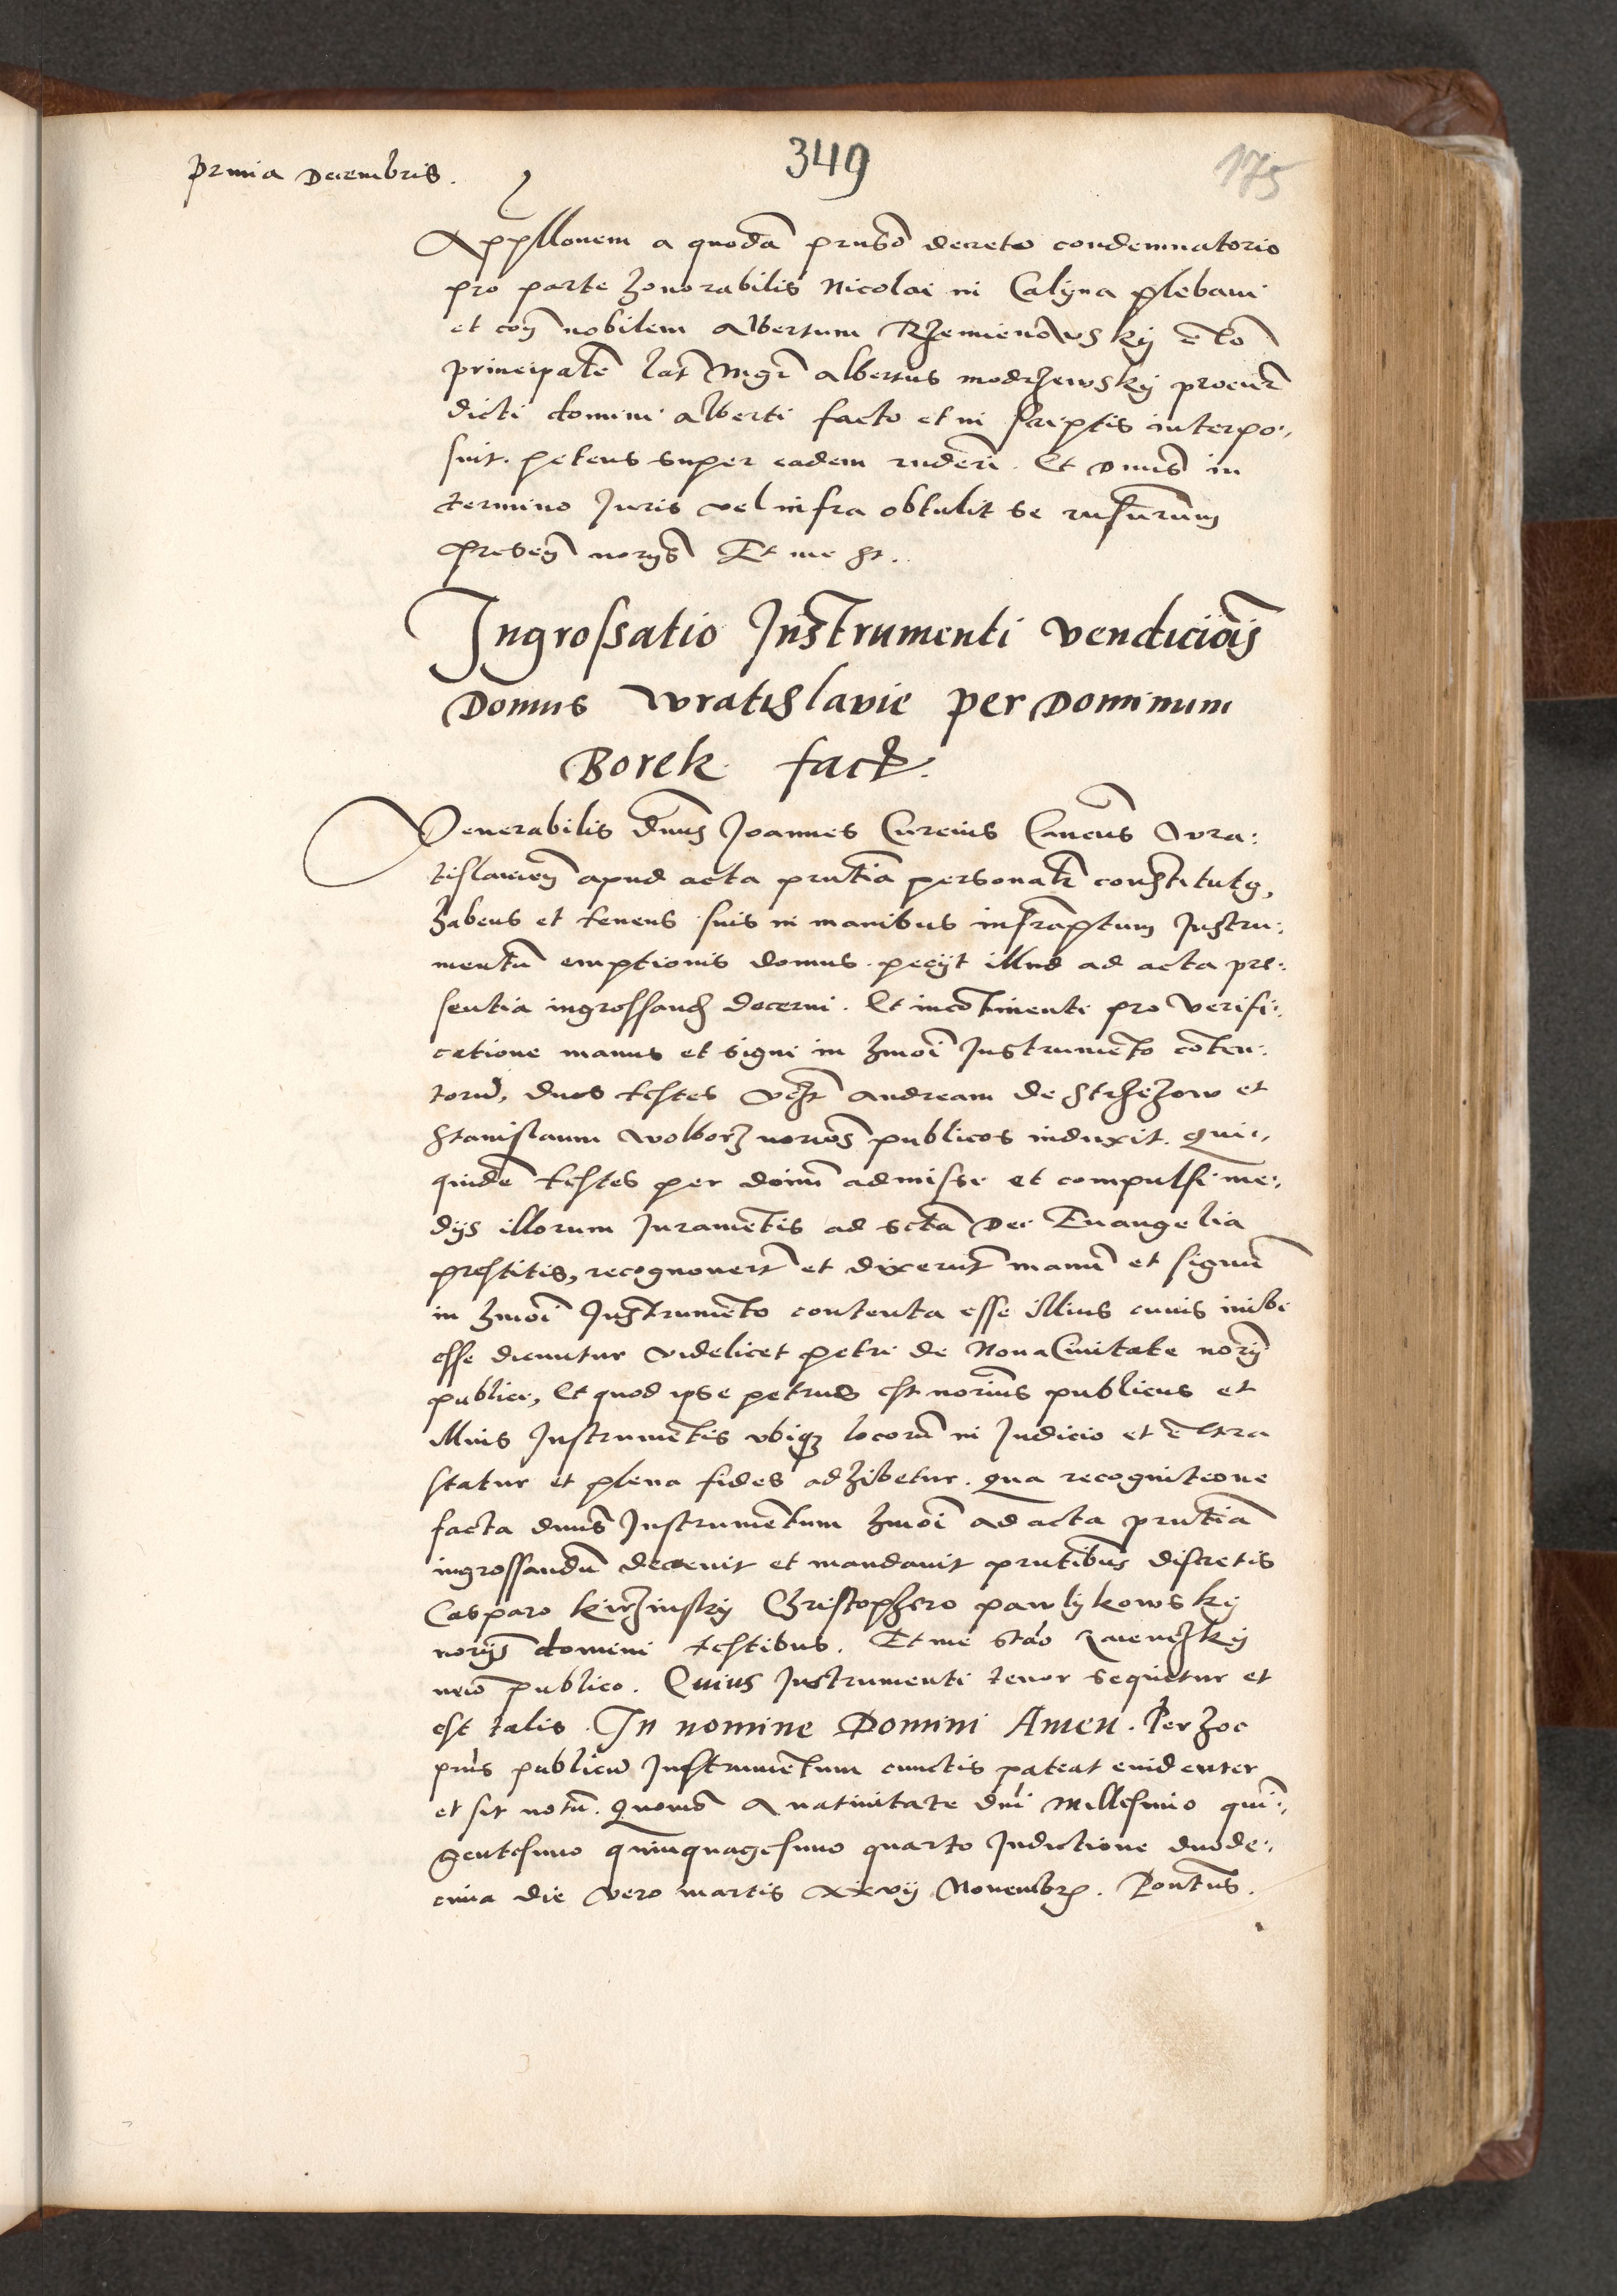 prima Decembris.
349
175
Appellonem a quodā prnso decreto condemnatorio
pro parte honorabilis Nicolai in Calyna plebani
et con nobilem Albertum Rzemienowsky
principalē lat Mgr Albertus modrzewsky procur
dicti domini Alberti facto et in scriptis interpo:,
suit. petens super eadem rnderi. Et Dnus in
termino Juris vel infra obtulit se rnsurum
presen norys Et me st.
Ingrossatio Instrumenti vendiciois
Domus wratislavie per Dominum
Borek fact.
Venerabilis dnus Joannes Cureus Cancus Wra:
tislavien apud acta prntia personalr constitutg,
habens et tenens suis in manibus infrascptum Instru:
mentū emptionis domus. peçijt illud ad acta pre:
sentia ingrossand decerni. Et incōtinenti pro verifi:
catione manus et signi in hmōi Instrumēto cōten:
torū, duos testes vezt Andream de Strzezow et
Stanislaum Wolborz norios publicos induxit. Qui:,
quidē testes per dōinū admissi et compulsi me:
dijs illorum Juramētis ad sctā Dei Euangelia
prestitis, recognouert et dixerūt manū et signū
in hmōi Instrumēto contenta esse illius cuius inibi
esse dicuntur videlicet petri de Noua Ciuitate nory
publici, Et quod ipse petrus est norius publicus et
illius Instrumētis vbiqz locorū in Judicio et extra
statur et plena fides adhibetur. Qua recognitione
facta dnus Instrumētum hmōi ad acta prntiā
ingrossandū decreuit et mandauit prntibus discretis
Casparo kirzinsky Christophero pawlykowsky
norys domini testibus. Et me stāo
nrio publico. Cuius Instrumenti tenor sequitur et
est talis. In nomine Domini Amen. Per hoc
prns publicū Instrumētum cunctis pateat euidenter
et sit notū. Quomō A natiuitate dni Millesimo quin:,
gentesimo quinquagesimo quarto Indictione duode:
cima die vero martis xxvij Nouembr. Pontus.